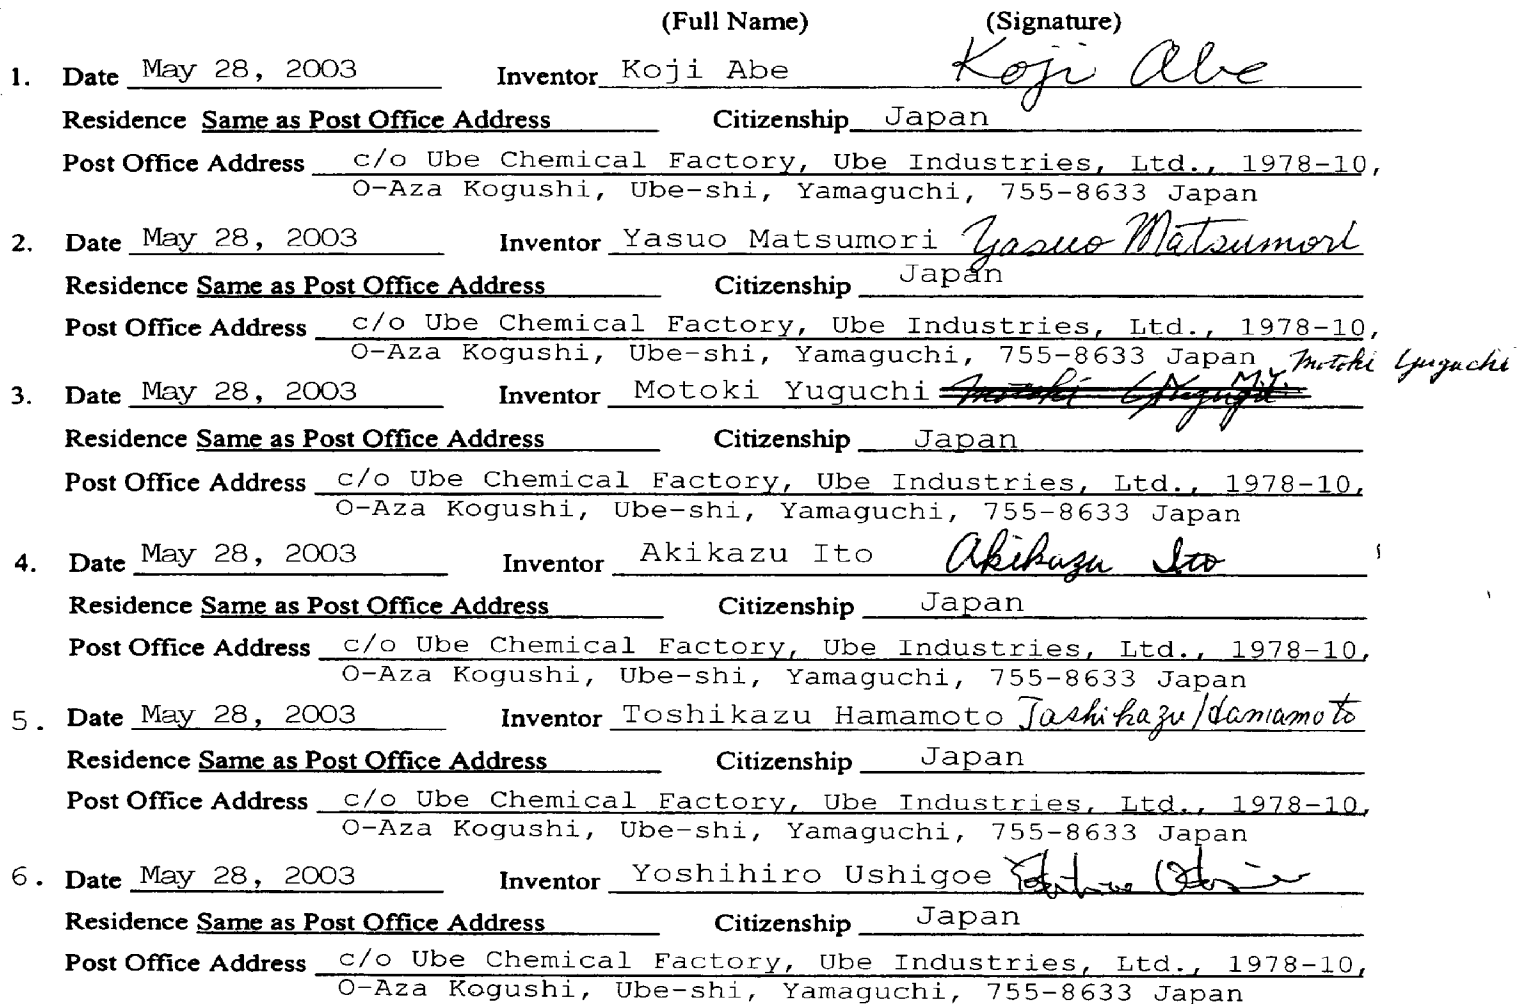 (Full Name) (Signature)
1. Date May 28, 2003 Inventor Koji Abe Koji Abe
Residence Same as Post Office Address Citizenship Japan
Post Office Address c/o Ube Chemical Factory, Ube Industries, Ltd., 1978-10,
O-Aza Kogushi, Ube-shi, Yamaguchi, 755-8633 Japan
2. Date May 28, 2003 Inventor Yasuo Matsumori Yasuo Matsumori
Residence Same as Post Office Address Citizenship Japan
Post Office Address c/o Ube Chemical Factory, Ube Industries, Ltd., 1978-10,
O-Aza Kogushi, Ube-shi, Yamaguchi, 755-8633 Japan
Motoki Yuguchi
3. Date May 28, 2003 Inventor Motoki Yuguchi
Residence Same as Post Office Address Citizenship Japan
Post Office Address c/o Ube Chemical Factory, Ube Industries, Ltd., 1978-10,
O-Aza Kogushi, Ube-shi, Yamaguchi, 755-8633 Japan
4. Date May 28, 2003 Inventor Akikazu Ito Akikazu Ito
Residence Same as Post Office Address Citizenship Japan
Post Office Address c/o Ube Chemical Factory, Ube Industries, Ltd., 1978-10,
O-Aza Kogushi, Ube-shi, Yamaguchi, 755-8633 Japan
5. Date May 28, 2003 Inventor Toshikazu Hamamoto Toshikazu Hamamoto
Residence Same as Post Office Address Citizenship Japan
Post Office Address c/o Ube Chemical Factory, Ube Industries, Ltd., 1978-10,
O-Aza Kogushi, Ube-shi, Yamaguchi, 755-8633 Japan
6. Date May 28, 2003 Inventor Yoshihiro Ushigoe
Residence Same as Post Office Address Citizenship Japan
Post Office Address c/o Ube Chemical Factory, Ube Industries, Ltd., 1978-10,
O-Aza Kogushi, Ube-shi, Yamaguchi, 755-8633 Japan